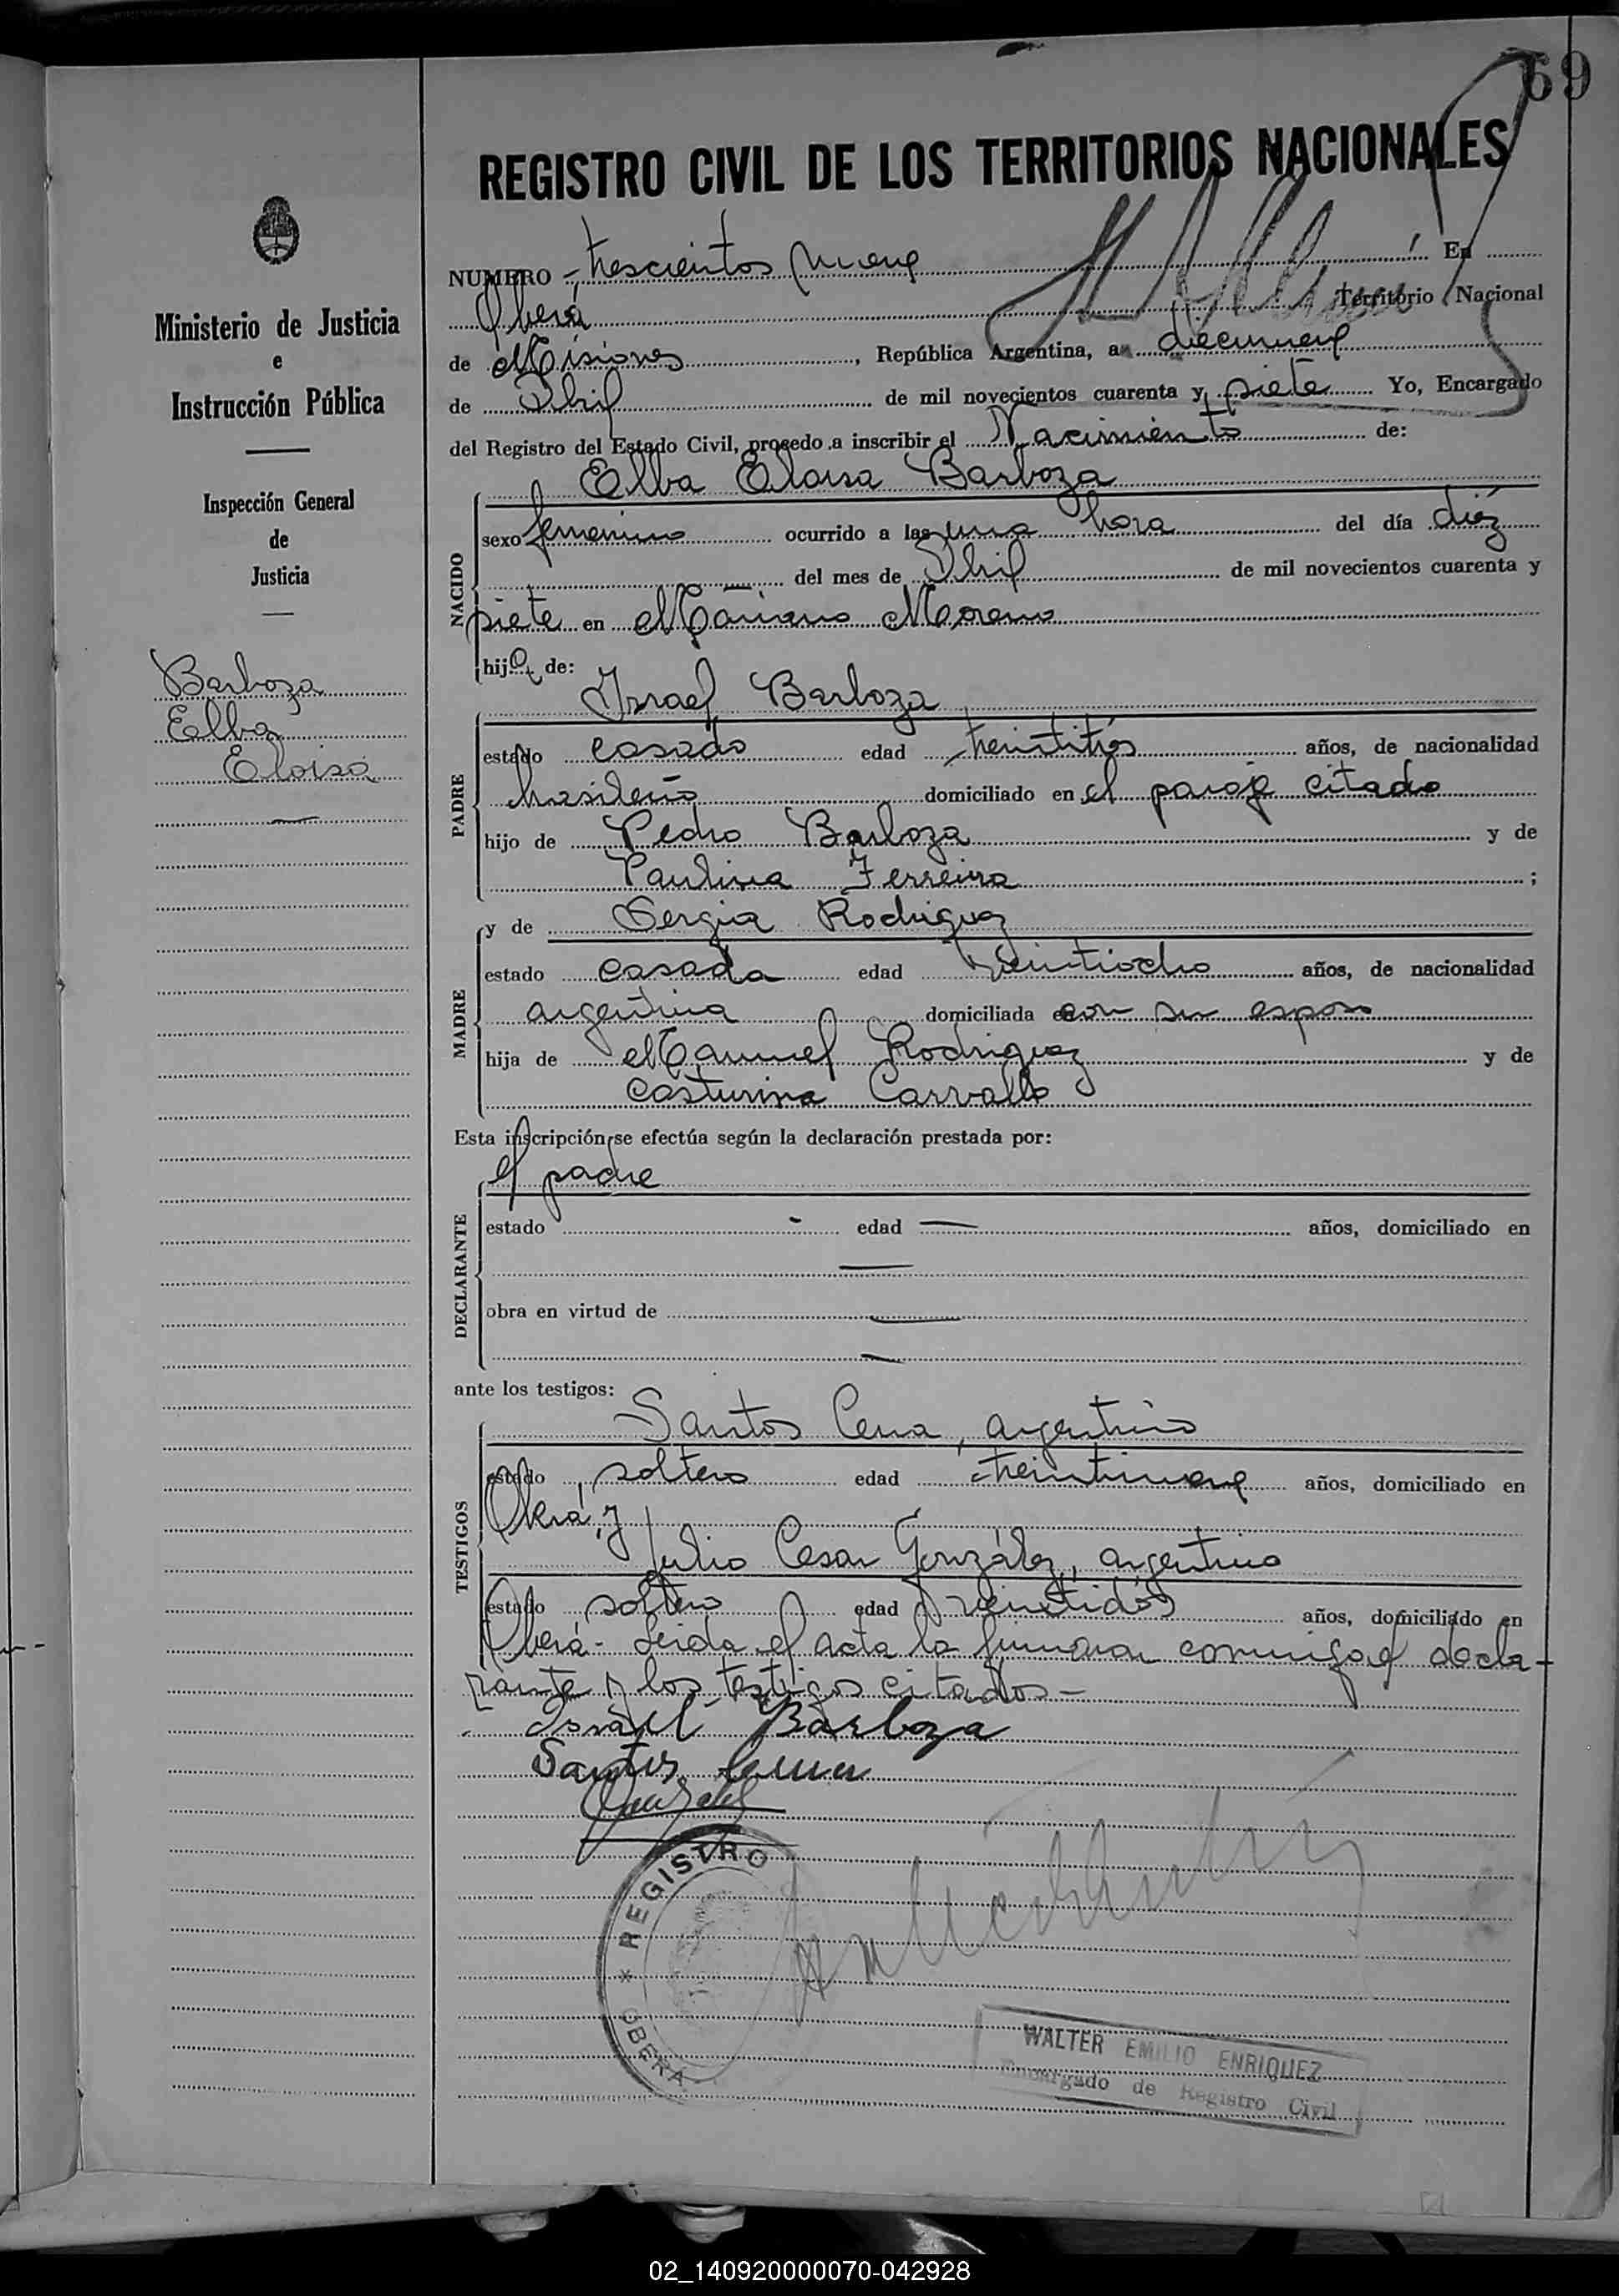 69
REGISTRO CIVIL DE LOS TERRITORIOS NACIONALES
Ministerio de Justicia
e
Instrucción Pública
Inspección General
de
Justicia
Barboza
Elba
Eloisa
NUMERO - trescientos nueve En
Oberá Territorio Nacional
de Misiones, República Argentina, a diecinueve
de Abril de mil novecientos cuarenta y siete Yo, Encargado
del Registro del Estado Civil, procedo a inscribir el Nacimiento de:
NACIDO
Elba Eloisa Barboza
sexo femenino ocurrido a las una hora del día diéz
del mes de Abril de mil novecientos cuarenta y
siete en Mariano Moreno
hija de:
PADRE
Israel Barboza
estado casado edad treintitrés años, de nacionalidad
brasileño domiciliado en el paraje citado
hijo de Pedro Barboza y de
Paulina Ferreira ;
MADRE
y de Sergia Rodriguez
estado casada edad veintiocho años, de nacionalidad
argentina domiciliada con su esposo
hija de Manuel Rodriguez y de
Casturina Carvallo
Esta inscripción se efectúa según la declaración prestada por:
DECLARANTE
el padre
estado - edad — años, domiciliado en
—
obra en virtud de —
—
ante los testigos:
TESTIGOS
Santos Cena, argentino
estado soltero edad treintinueve años, domiciliado en
Oberá, y
Julio Cesar González, argentino
estado soltero edad veintidós años, domiciliado en
Oberá - Leida el acta la firmaron conmigo el decla-
rante y los testigos citados -
Israel Barboza
Santos Cena
Gonzalez
REGISTRO
* OBERA
WALTER EMILIO ENRIQUEZ
Encargado de Registro Civil
02_140920000070-042928